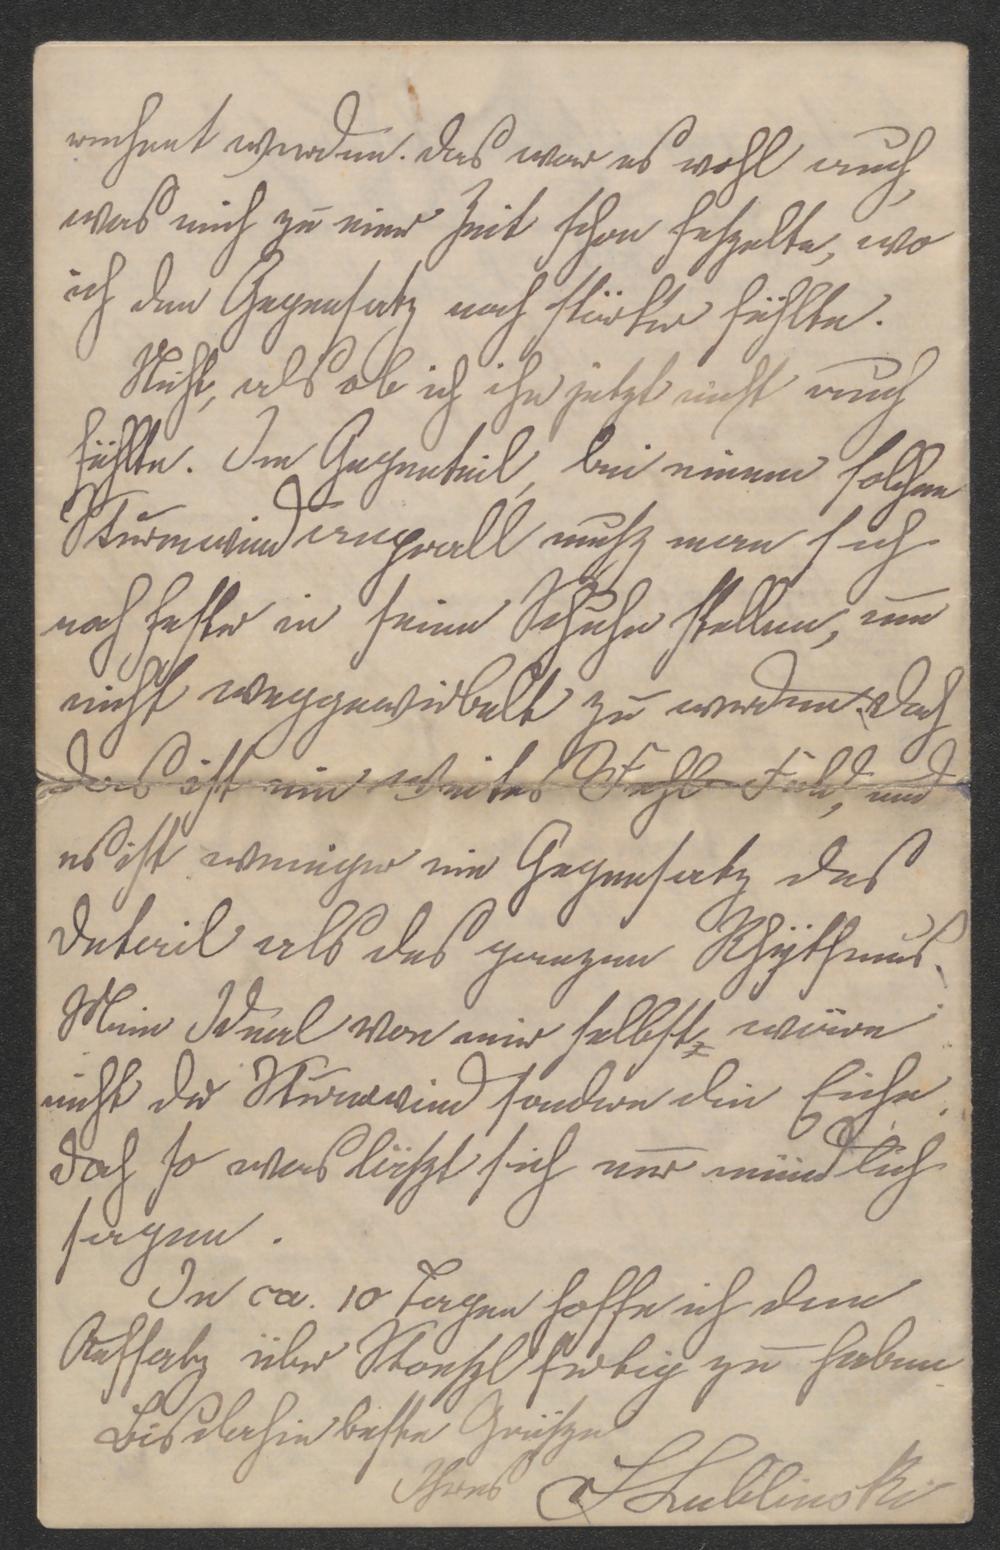 rechnet werden. Das war es wohl auch,
was mich zu einer Zeit schon feszelte, wo
ich den Gegensatz noch stärker fühlte.
Nicht, als ob ich ihn jetzt nicht auch
fühlte. Im Gegenteil, bei einem solchen
Sturmwindanprall musz man sich
noch fester in seine Schuhe stellen, um
nicht weggewirbelt zu werden. Doch
das ist ein weites Fehl Feld, und
es ist weniger ein Gegensatz des
Detail als des ganzen Rhythmus.
Mein Ideal von mir selbst wäre
nicht der Sturmwind sondern die Eiche.
Doch so was läszt sich nur mündlich
sagen.
In ca. 10 Tagen hoffe ich den
Aufsatz über Stoeszl fertig zu haben.
Bis dahin beste Grüsze
Ihres S Lublinski